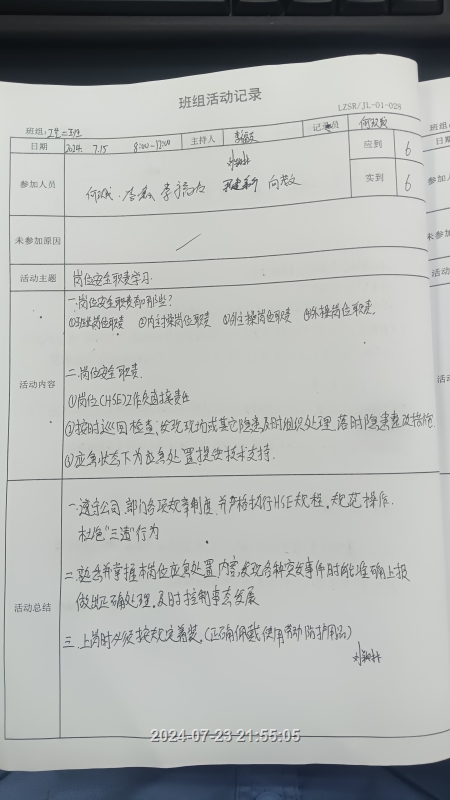 班组活动记录
LZSR/JL-01-028
班组: 工艺二班
日期 2024 7.15 8:00-17:00 主持人 记录员
参加人员 应到 6
实到 6
未参加原因
活动主题 岗位安全职责学习.
活动内容
一.岗位安全职责有哪些?
①班长岗位职责 ②内操岗位职责 ③外主操岗位职责 ④外操岗位职责.
二.岗位安全职责.
①岗位(HSE)工作负直接责任
②按时巡回检查,发现现场或其它隐患及时组织处理,落实隐患整改措施.
③应急状态下为应急处置提供技术支持.
活动总结
一.遵守公司、部门各项规章制度,并严格执行HSE规程,规范操作.
杜绝"三违"行为
二.熟悉并掌握本岗位应急处置内容,发现各种突发事件时能准确上报
做出正确处理,及时控制事态发展
三.上岗时必须按规定着装.(正确佩戴使用劳动防护用品)
2024-07-23 21:55:05
班组:
日期